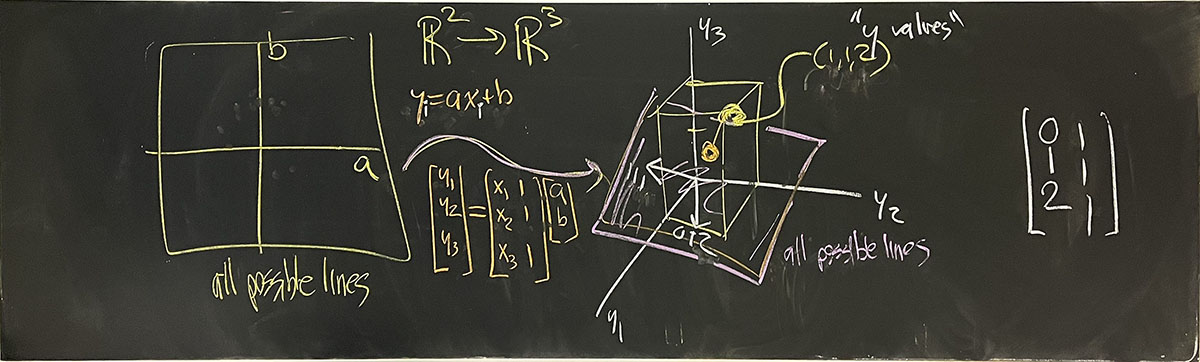 b
a
all possible lines
ℝ² → ℝ³
yᵢ = axᵢ + b
[y₁ y₂ y₃] = [x₁ 1 x₂ 1 x₃ 1] [a b]
y₃
"y values"
(1,1,2)
y₂
y₁
012
all possible lines
0 1
1 1
2 1